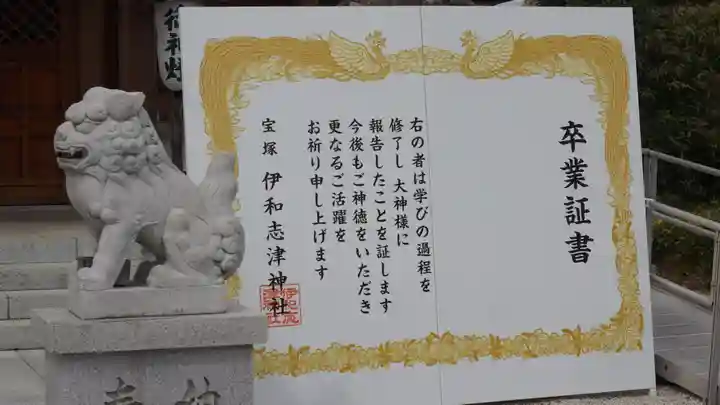 卒業証書
右の者は学びの過程を
修了し 大神様に
報告したことを証します
今後もご神徳をいただき
更なるご活躍を
お祈り申し上げます
宝塚 伊和志津神社
御神燈